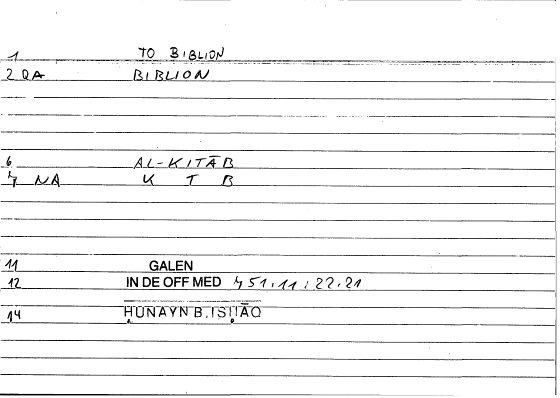 1 TO BIBLION
2 QA BIBLION
6 AL-KITĀB
7 NA K T B
11 GALEN
12 IN DE OFF MED 751.11 : 22.21
14 ḤUNAYN B. ISḤĀQ